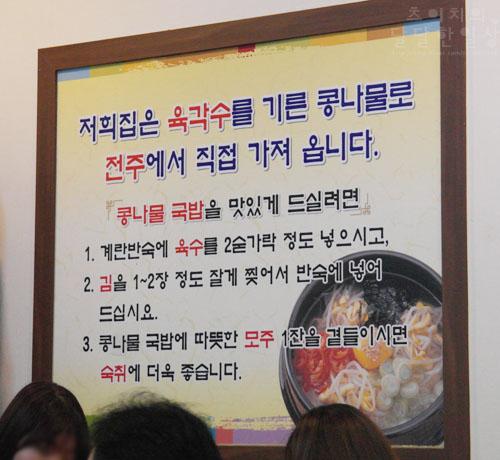 츠이차의
달달한일상
저희집은 육각수를 기른 콩나물로
전주에서 직접 가져 옵니다.
콩나물 국밥을 맛있게 드실려면
1. 계란반숙에 육수를 2숟가락 정도 넣으시고,
2. 김을 1~2장 정도 잘게 찢어서 반숙에 넣어
드십시요.
3. 콩나물 국밥에 따뜻한 모주 1잔을 곁들이시면
숙취에 더욱 좋습니다.